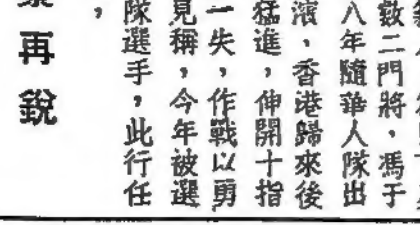 數二門將，馮于
八年隨華人隊出
濱，香港歸來後
猛進，伸開十指
一失，作戰以勇
見稱，今年被選
隊選手，此行任
，
再銳